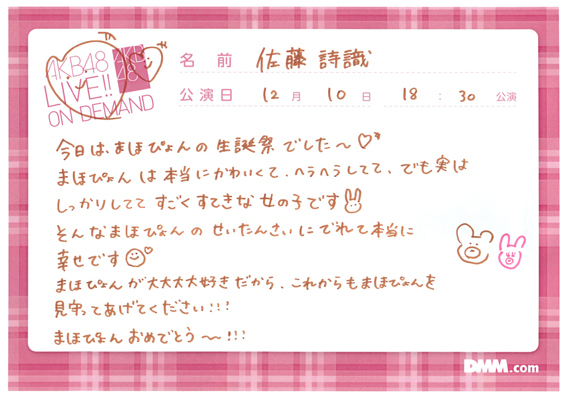 AKB48
LIVE!!
ON DEMAND
AKB48
名前 佐藤 詩識
公演日 12月 10日 18:30公演
今日は、まほぴょんの生誕祭でした〜♡
まほぴょんは本当にかわいくて、ヘラヘラしてて、でも実は
しっかりしてて すごくすてきな女の子です
そんなまほぴょんの せいたんさいにでれて本当に
幸せです
まほぴょんが大大大大好きだから、これからもまほぴょんを
見守ってあげてください!!!
まほぴょんおめでとう〜!!!
DMM.com